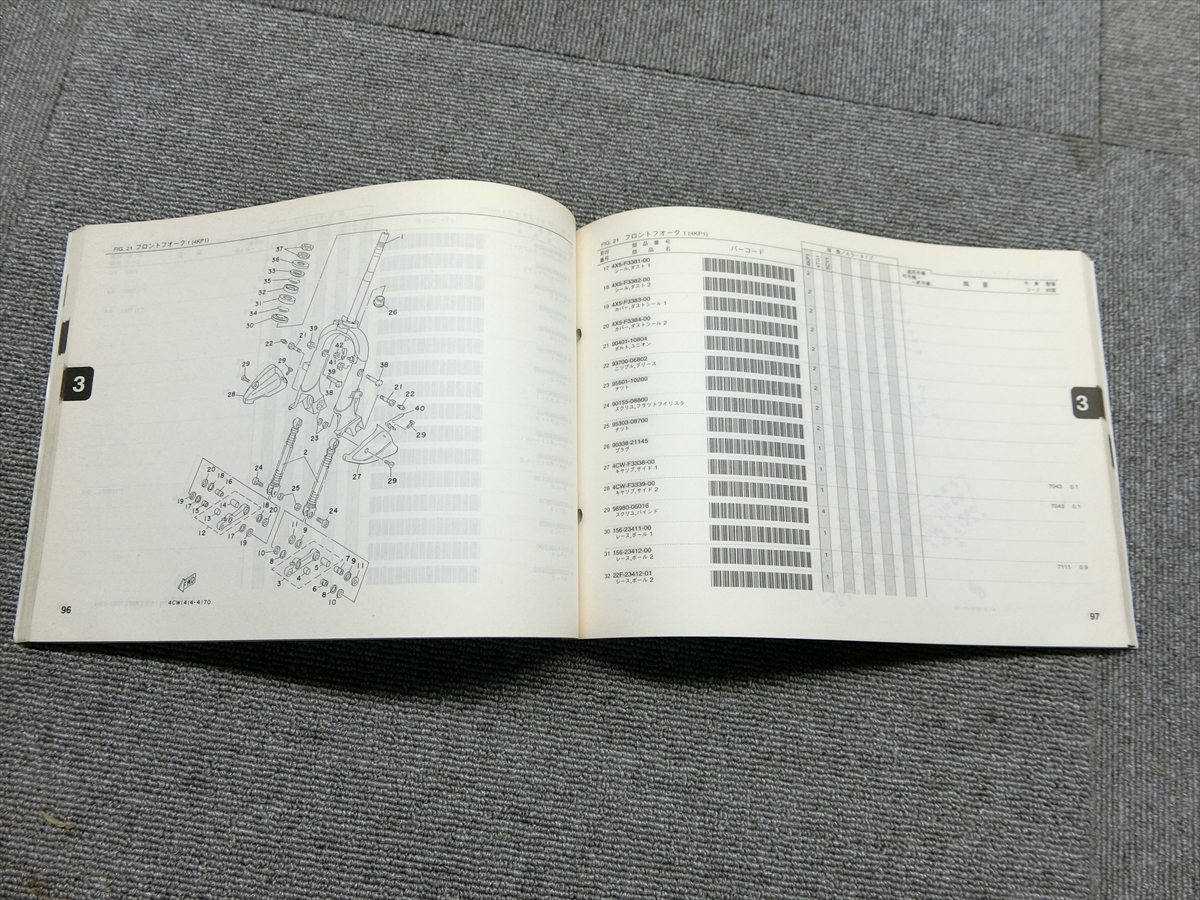 FIG. 21 フロントフオーク 1 (4KP1)
37
36
33
35
32
31
34
30
1
26
22
21
39
42
41
39
38
38
29
29
28
21
22
40
29
23
27
29
2
24
25
24
20
18
16
19
17
15
14
13
12
18
20
17
19
11
9
10
8
3
4
5
6
7
9
11
8
10
4CW1414-4170
96
3
FIG. 21 フロントフオーク 1 (4KP1)
見出番号 部品番号 部品名 バーコード
4KP1
摘要
17 4X5-F3381-00
シール,ダスト 1
2
18 4X5-F3382-00
シール,ダスト 2
2
19 4X5-F3383-00
カバー,ダストシール 1
2
20 4X5-F3384-00
カバー,ダストシール 2
2
21 90401-10804
ボルト,ユニオン
2
22 93700-06802
ニツプル,グリース
2
23 95601-10200
ナツト
2
24 90155-08800
スクリユ,フラツトフイリスタ
2
25 95303-08700
ナツト
2
26 90338-21145
プラグ
1
27 4CW-F3338-00
キヤツプ,サイド 1
1
7043 0.1
28 4CW-F3339-00
キヤツプ,サイド 2
1
7043 0.1
29 98980-06016
スクリユ,バインド
4
30 156-23411-00
レース,ボール 1
1
31 156-23412-00
レース,ボール 2
1
32 22F-23412-01
レース,ボール 2
1
7111 0.9
3
97